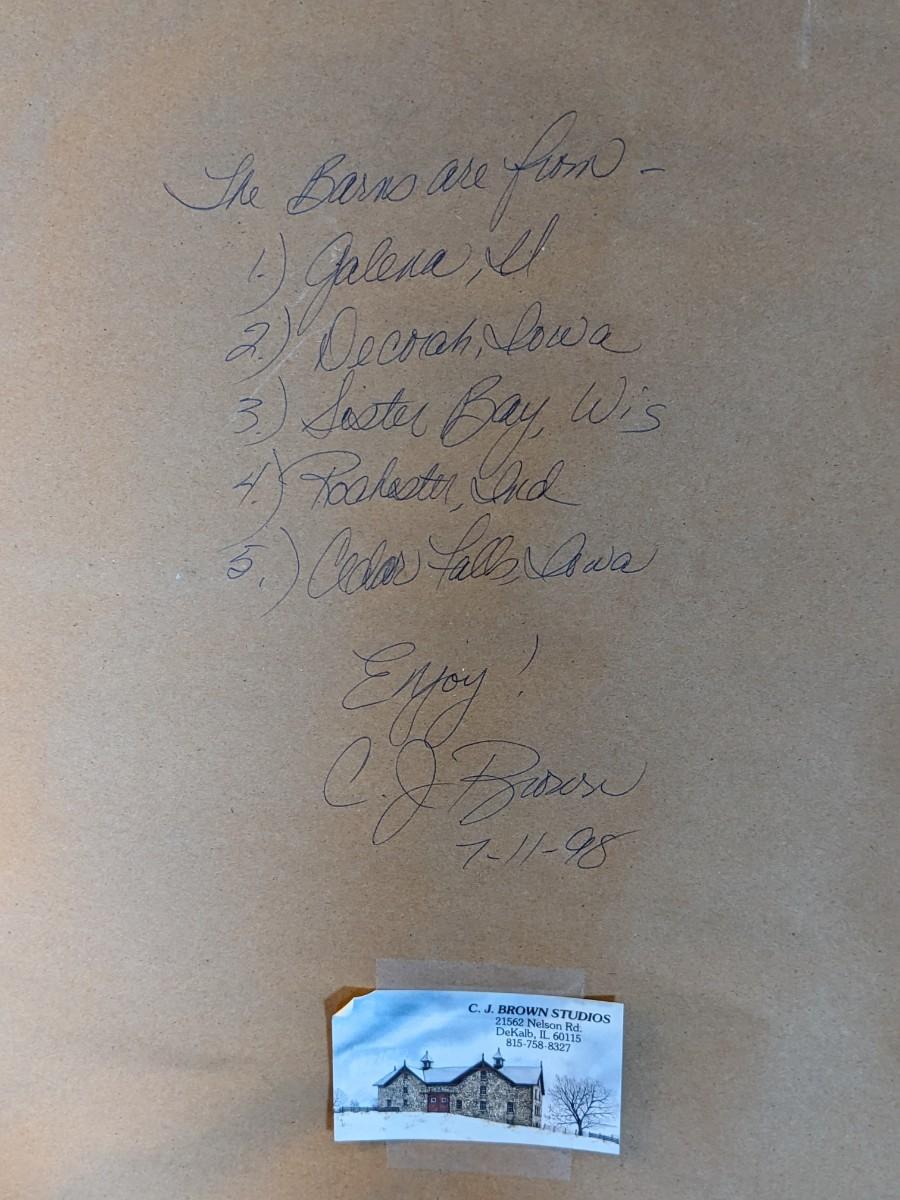 The Barns are from -
1.) Galena, Il
2.) Decorah, Iowa
3.) Sister Bay, Wis
4.) Roshester, Ind
5.) Cedar Falls, Iowa
Enjoy!
C. J. Brown
7-11-98
C. J. BROWN STUDIOS
21562 Nelson Rd.
DeKalb, IL 60115
815-758-8327